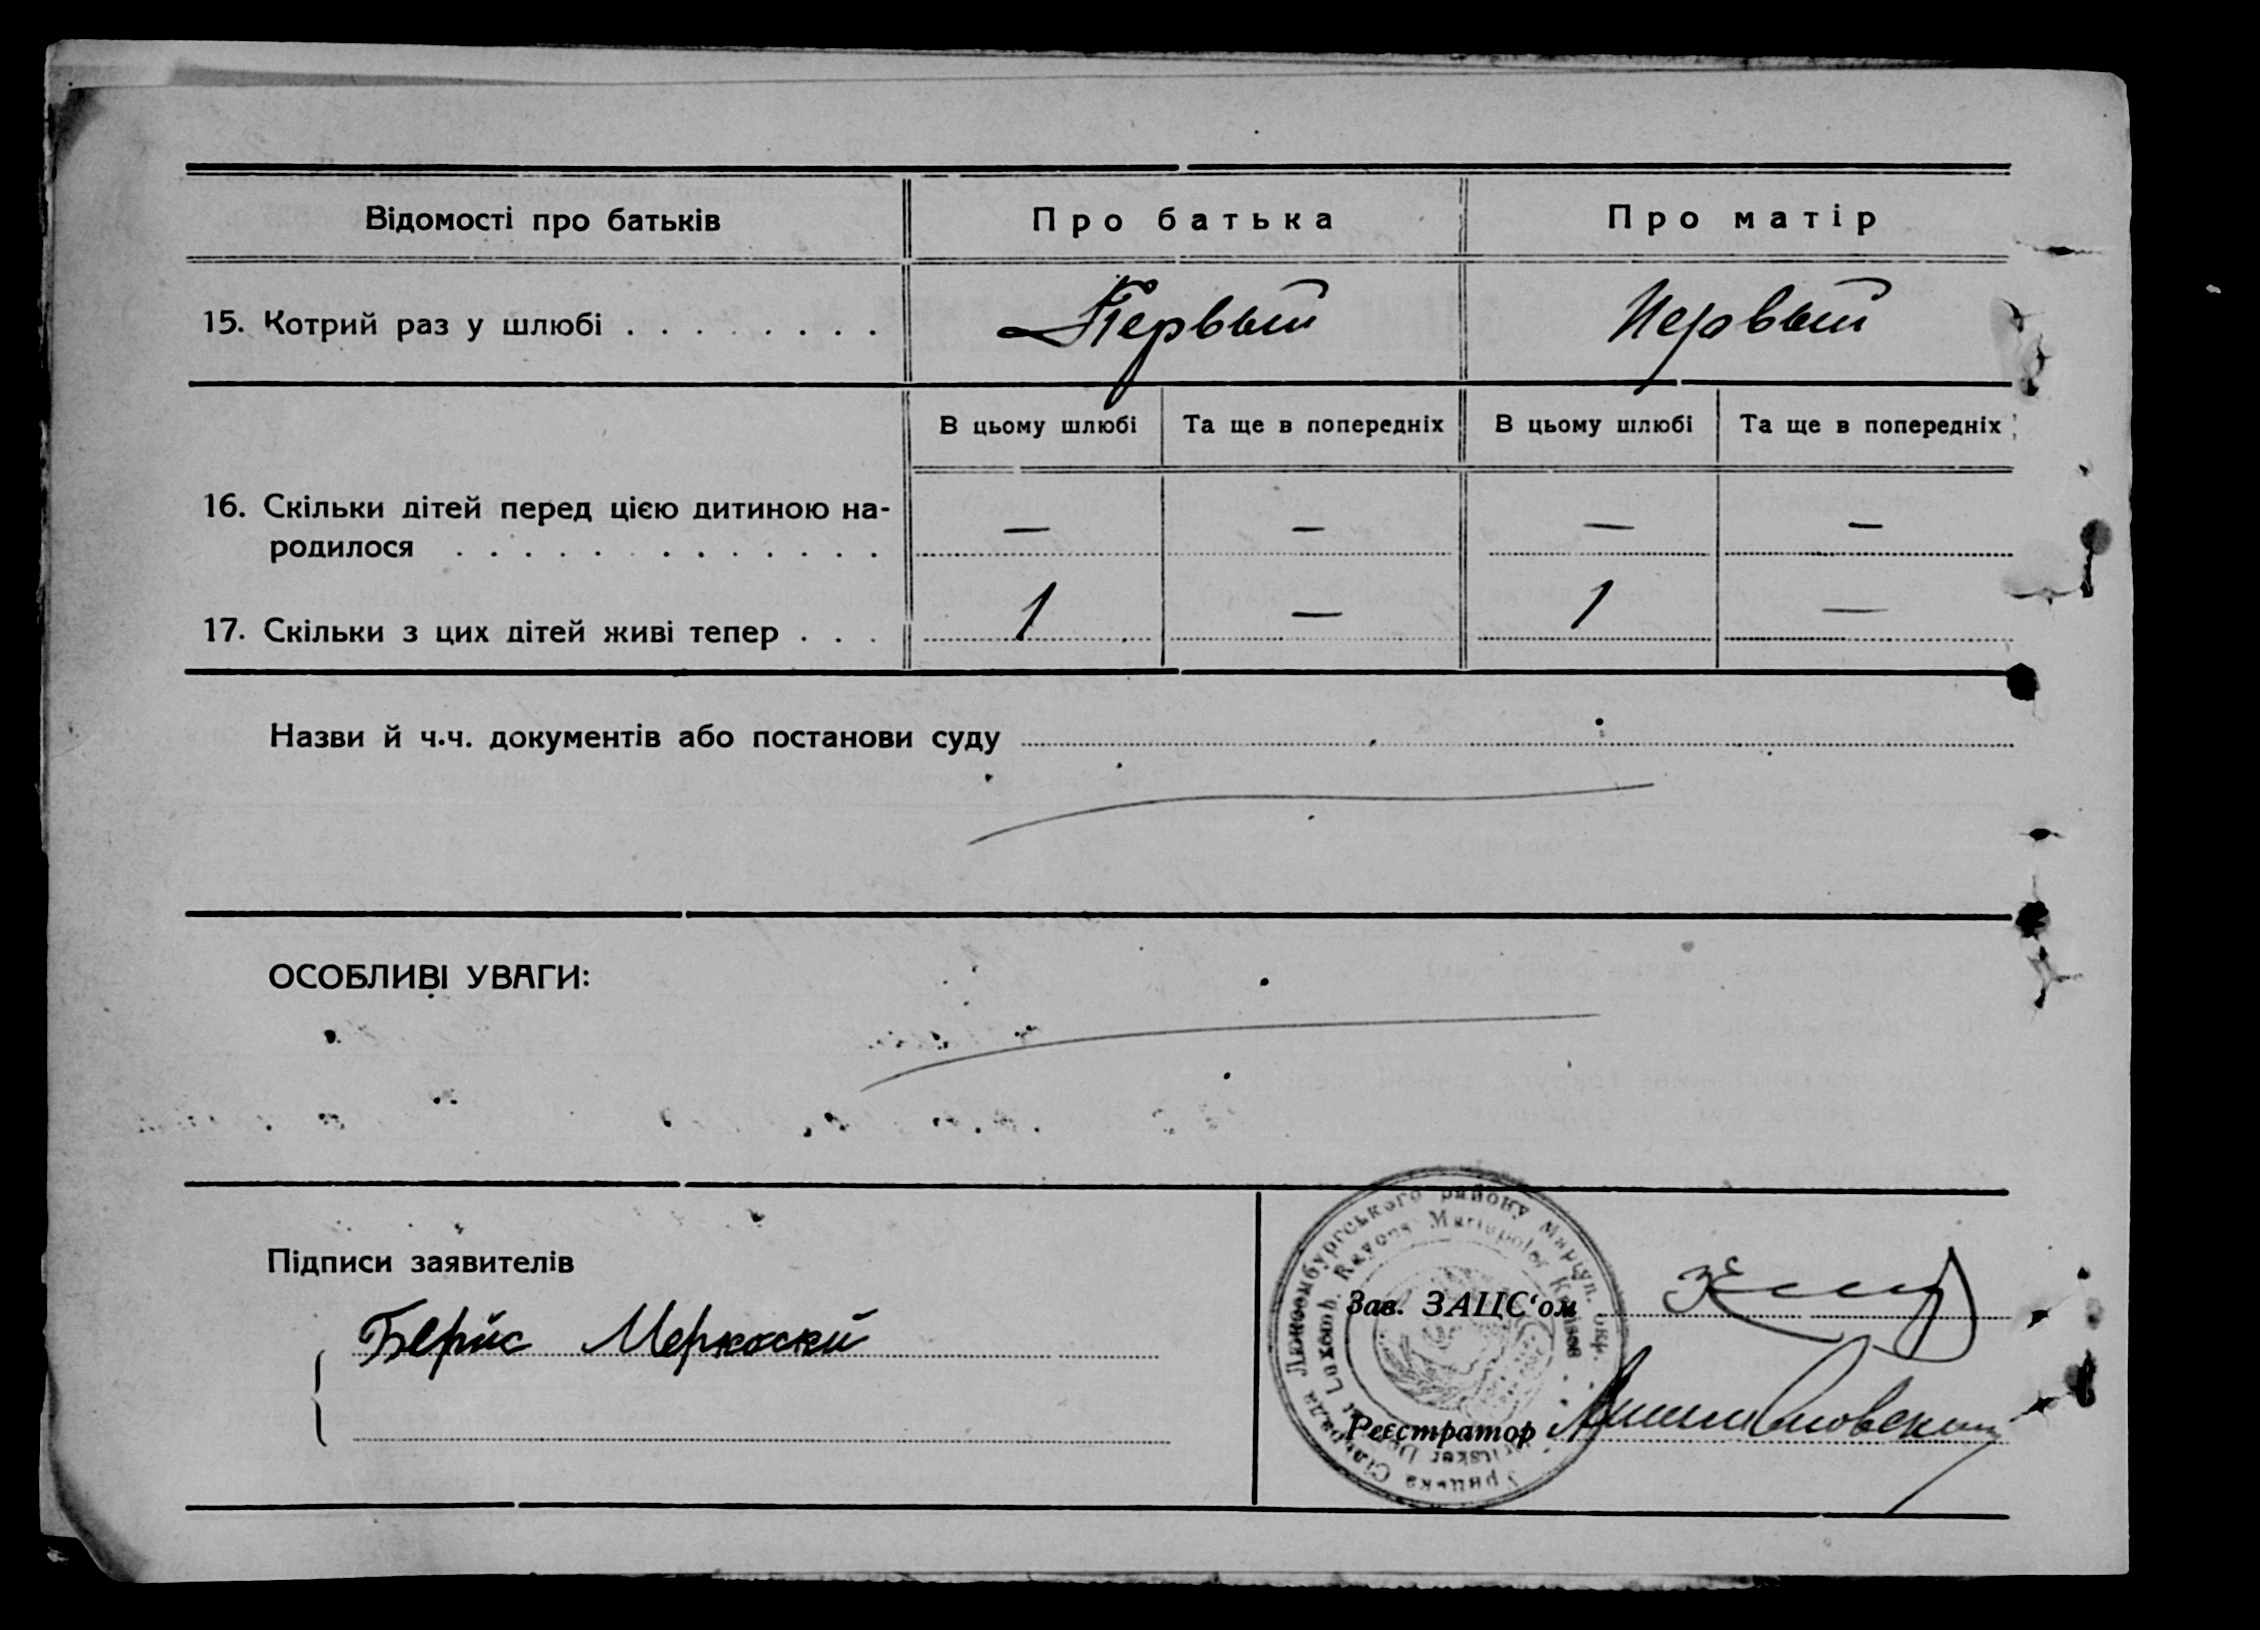 Відомості про батьків Про батька Про матір
15. Котрий раз у шлюбі . . . . . . . . Первый Первый
В цьому шлюбі Та ще в попередніх В цьому шлюбі Та ще в попередніх
16. Скільки дітей перед цією дитиною на-
родилося . . . . . . . . . . . . . — — — —
17. Скільки з цих дітей живі тепер . . . 1 — 1 —
Назви й ч.ч. документів або постанови суду
ОСОБЛИВІ УВАГИ:
Люксембургського району Маріуп. окр.
Luxemb. Rayons Mariupoler Kreises
Підписи заявителів
Зав. ЗАЦС‘ом
Реєстратор